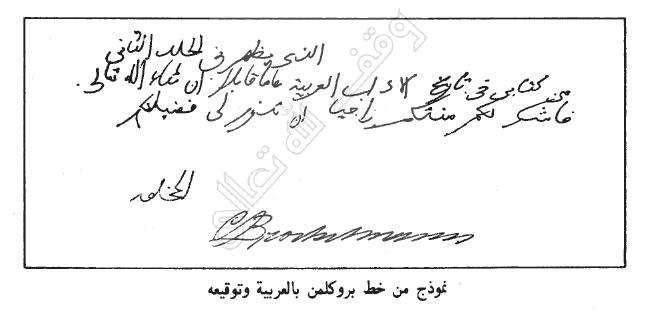 وقف لله تعالى
الذى يظهر فى الجلد الثانى
من كتابى فى تاريخ الاداب العربية عاما قابلا ان شاء الله تعالى.
فاشكر لكم منتكم راجيا ان لى فضيلتكم
المخلص
C Brockelmann
نموذج من خط بروكلمن بالعربية وتوقيعه